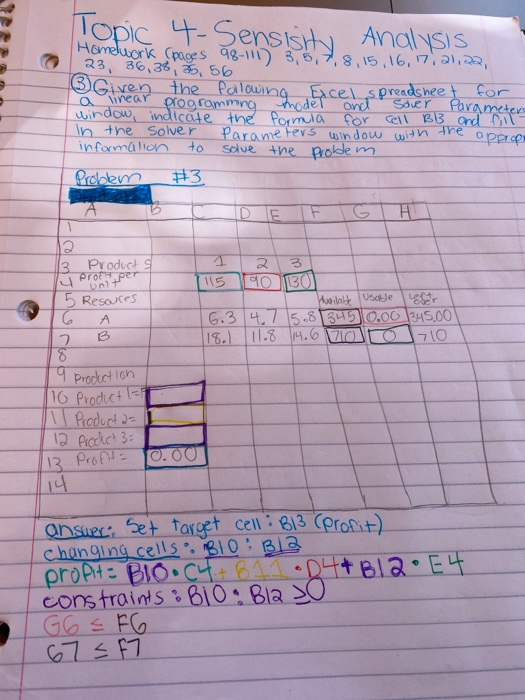 Topic 4 - Sensisity Analysis
Homework (pages 98-111) 3, 5, 7, 8, 15, 16, 17, 21, 22,
23, 36, 38, 35, 56
③ Given the following Excel spreadsheet for
a linear programming model and Solver Parameters
window, indicate the formula for cell B13 and fill
in the solver Parameters window with the approp
information to solve the problem
Problem #3
A B C D E F G H
1
2
3 Products 1 2 3
4 profit per unit 115 90 130
5 Resources Available Usable Left over
6 A 6.3 4.7 5.8 345 0.00 345.00
7 B 18.1 11.8 14.6 710 0 710
8
9 Production
10 Product 1=
11 Product 2=
12 Product 3=
13 Profit = 0.00
14
answer: Set target cell: B13 (profit)
changing cells: B10: B12
profit = B10 • C4 + B11 • D4 + B12 • E4
constraints: B10: B12 ≥ 0
G6 ≤ F6
G7 ≤ F7